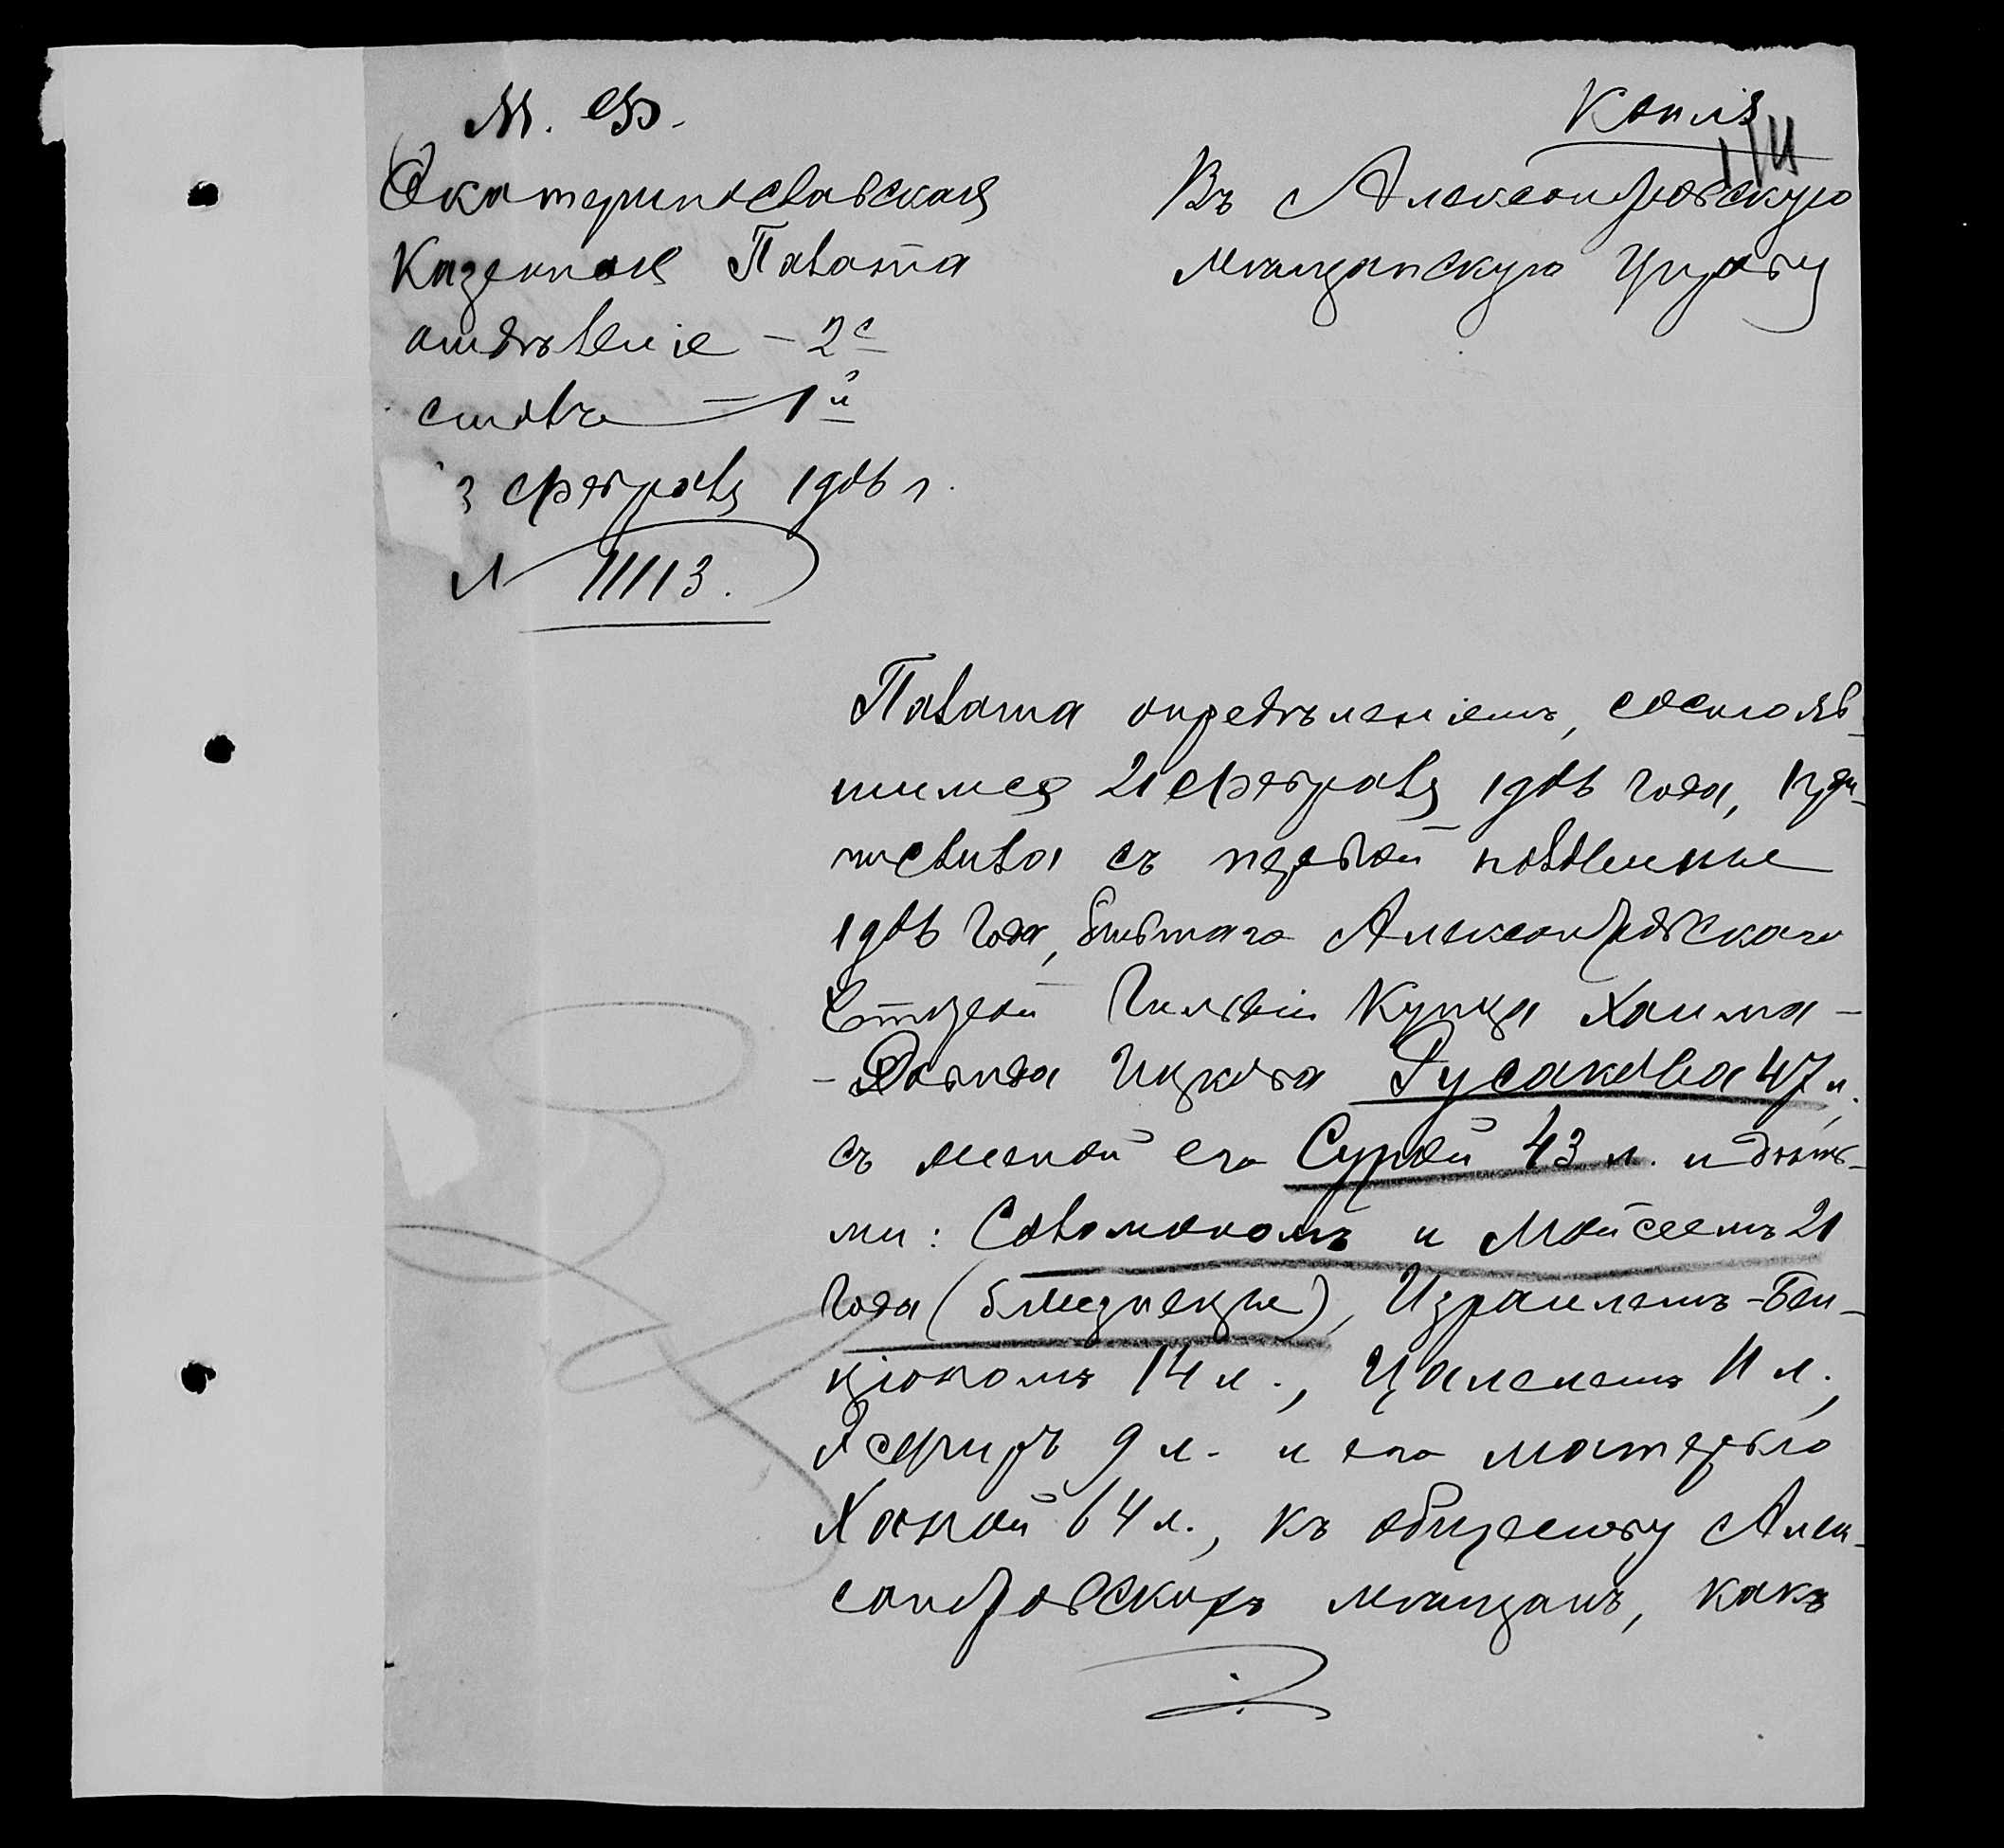 М. Ф.
Копія
Екатеринославская
Казенная Палата
отдѣленіе – 2е
столъ – 1й
3 февраля 1906 г.
№ 11113.
Въ Александровскую
мѣщанскую Управу
Палата опредѣленіемъ, состояв-
шимся 21 февраля 1906 года, при-
числила съ первой половины
1906 года, бывшаго Александровскаго
второй Гильдіи Купца Хаима-
-Давида Ицкова Русакова 47 л.
съ женой его Сурой 43 л. и дѣть-
ми: Соломономъ и Мойсеемъ 21
года (близнецы), Израилемъ-Бен-
ціономъ 14 л., Цалелемъ 11 л.,
Эсфирь 9 л. и его матерью
Ханой 64 л., къ обществу Алек-
сандровскихъ мѣщанъ, какъ